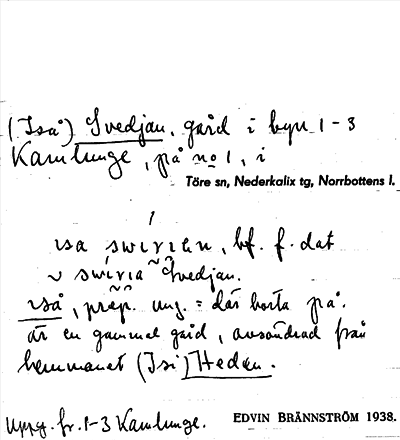 (Iså) Svedjan, gård i byn 1-3
Kamlunge, på no 1, i
Töre sn, Nederkalix tg, Norrbottens l.
ısa swirian, bf. f. dat
v swiria Svedjan.
iså, präp. ung. = där borta på.
är en gammal gård, avsöndrad från
hemmanet (Isi) Heden.
Uppg. fr. 1-3 Kamlunge.
EDVIN BRÄNNSTRÖM 1938.